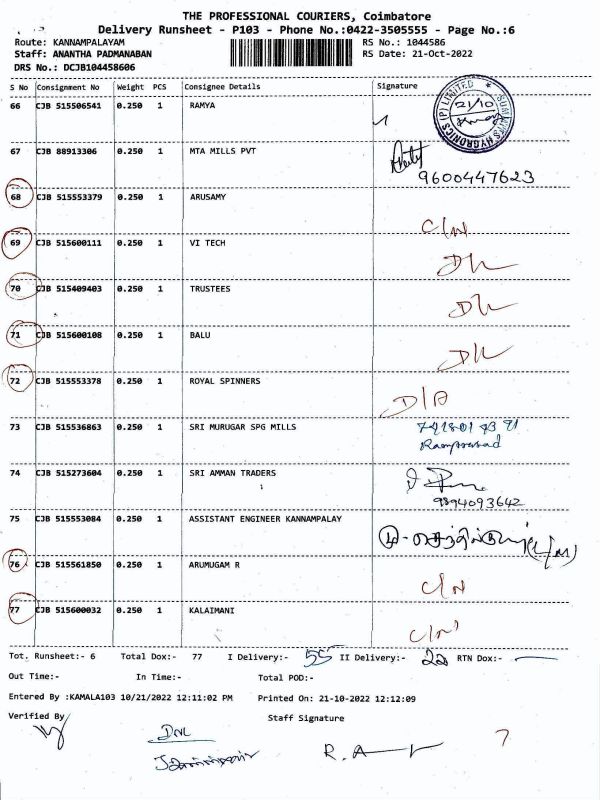 THE PROFESSIONAL COURIERS, Coimbatore
Delivery Runsheet - P103 - Phone No.:0422-3505555 - Page No.:6
Route: KANNAMPALAYAM RS No.: 1044586
Staff: ANANTHA PADMANABAN RS Date: 21-Oct-2022
DRS No.: DCJB104458606
S No Consignment No Weight PCS Consignee Details Signature
66 CJB 515506541 0.250 1 RAMYA
SUMMITS HYGRONICS (P) LIMITED
21/10
67 CJB 88913306 0.250 1 MTA MILLS PVT
9600447623
68 CJB 515553379 0.250 1 ARUSAMY
C/N
69 CJB 515600111 0.250 1 VI TECH
D/L
70 CJB 515409403 0.250 1 TRUSTEES
D/L
71 CJB 515600108 0.250 1 BALU
D/L
72 CJB 515553378 0.250 1 ROYAL SPINNERS
D/A
73 CJB 515536863 0.250 1 SRI MURUGAR SPG MILLS
Ramprasad
74 CJB 515273604 0.250 1 SRI AMMAN TRADERS
9894093642
75 CJB 515553084 0.250 1 ASSISTANT ENGINEER KANNAMPALAY
76 CJB 515561850 0.250 1 ARUMUGAM R
C/N
77 CJB 515600032 0.250 1 KALAIMANI
C/N
Tot. Runsheet:- 6 Total Dox:- 77 I Delivery:- 55 II Delivery:- 22 RTN Dox:-
Out Time:- In Time:- Total POD:-
Entered By :KAMALA103 10/21/2022 12:11:02 PM Printed On: 21-10-2022 12:12:09
Verified By Staff Signature
R.A
7